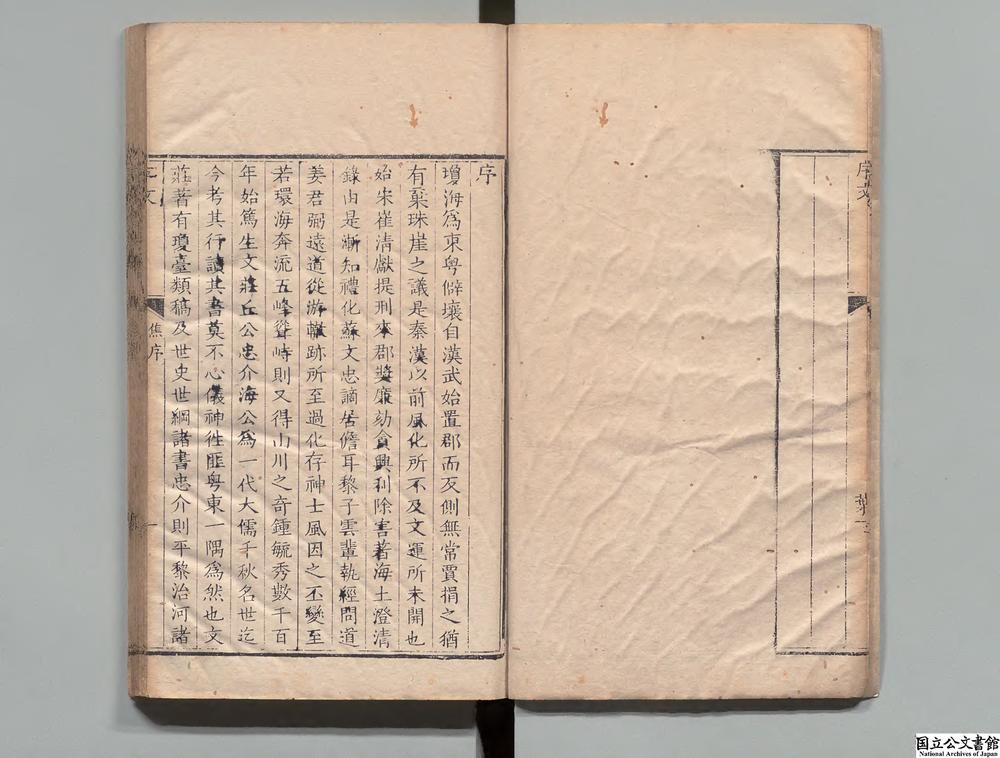 序文
葉
序
瓊海爲東粤僻壤自漢武始置郡而反側無常賈捐之猶
有棄珠崖之議是秦漢以前風化所不及文運所未開也
始宋崔清獻提刑來郡奬廉劾貪興利除害著海土澄清
錄由是漸知禮化蘇文忠謫居儋耳黎子雲輩執經問道
姜君弼遠道從游轍跡所至過化存神士風因之丕變至
若環海奔流五峰聳峙則又得山川之奇鍾毓秀數千百
年始篤生文莊丘公忠介海公爲一代大儒千秋名世迄
今考其行讀其書莫不心儀神徃匪粤東一隅爲然也文
莊著有瓊臺類稿及世史世綱諸書忠介則平黎治河諸
焦序
一
国立公文書館
National Archives of Japan